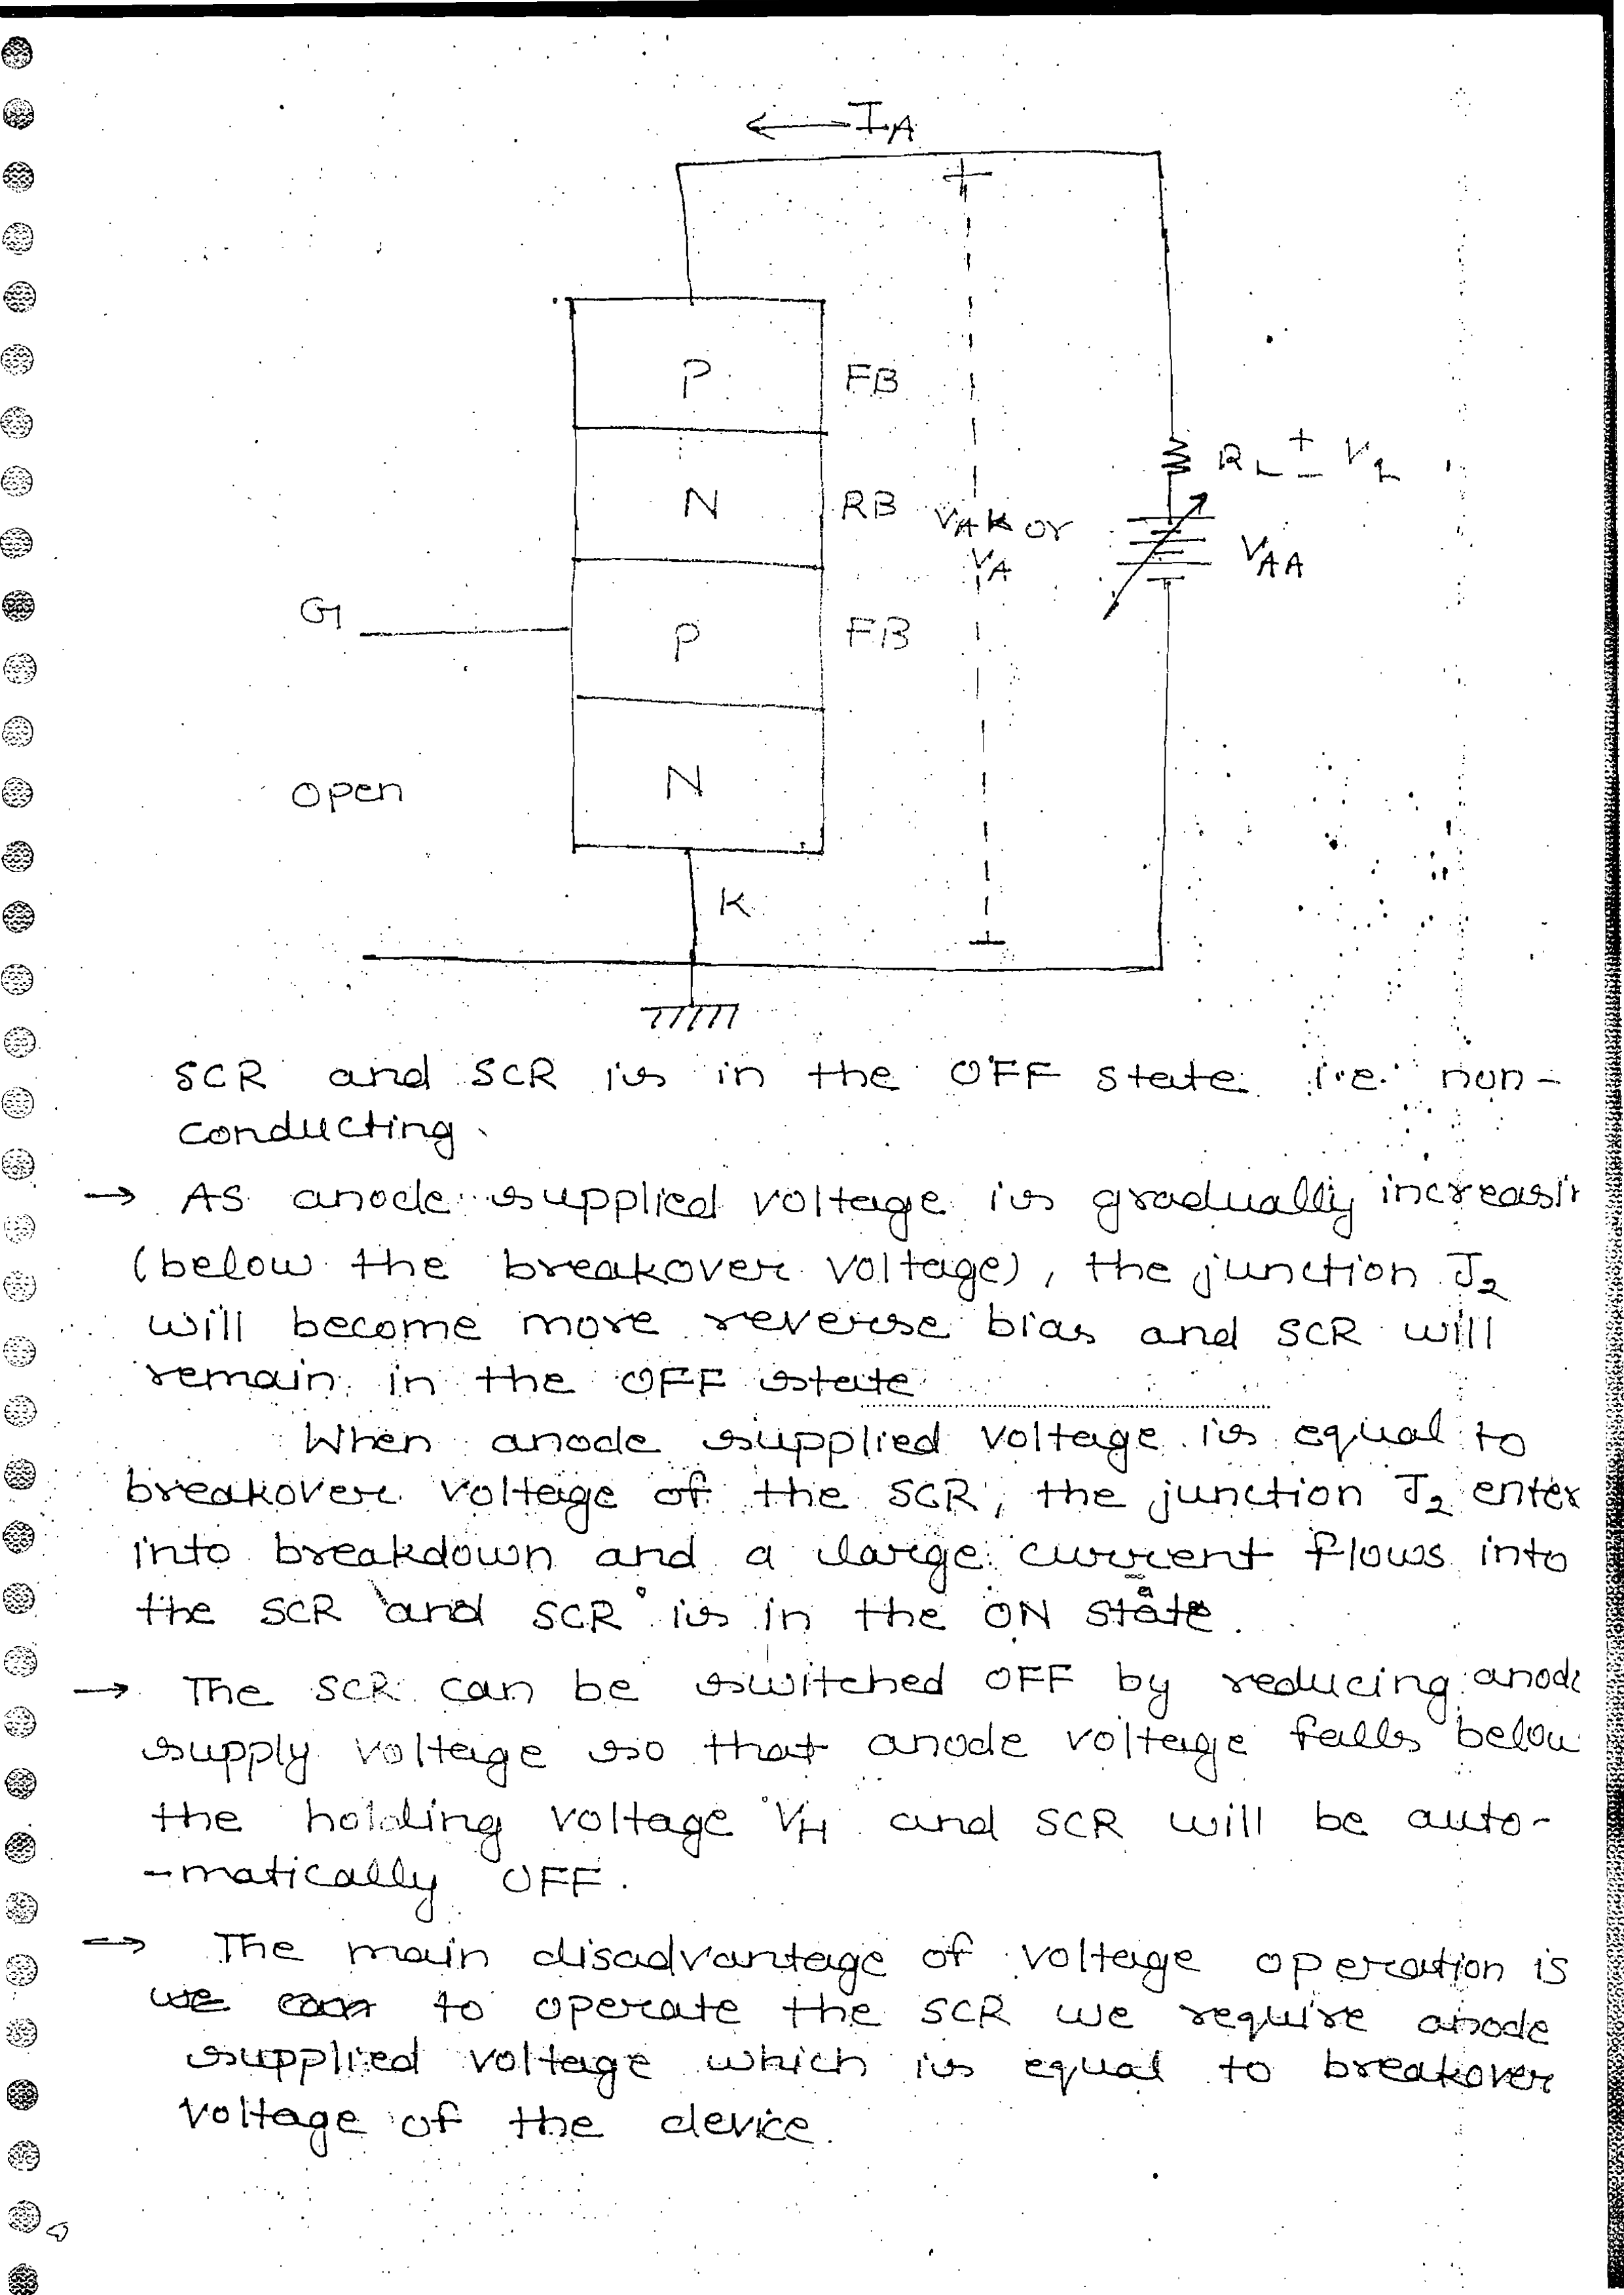 ← I_A
+
P FB
R_L + - V_L
N RB V_AK or
V_A V_AA
G P FB
N
open
K
SCR and SCR is in the OFF state i.e. non-
conducting.
→ As anode supplied voltage is gradually increasin
(below the breakover voltage), the junction J₂
will become more reverse bias and SCR will
remain in the OFF state
When anode supplied voltage is equal to
breakover voltage of the SCR, the junction J₂ enter
into breakdown and a large current flows into
the SCR and SCR is in the ON state.
→ The SCR can be switched OFF by reducing anode
supply voltage so that anode voltage falls below
the holding voltage V_H and SCR will be auto-
-matically OFF.
→ The main disadvantage of voltage operation is
we can to operate the SCR we require anode
supplied voltage which is equal to breakover
voltage of the device.